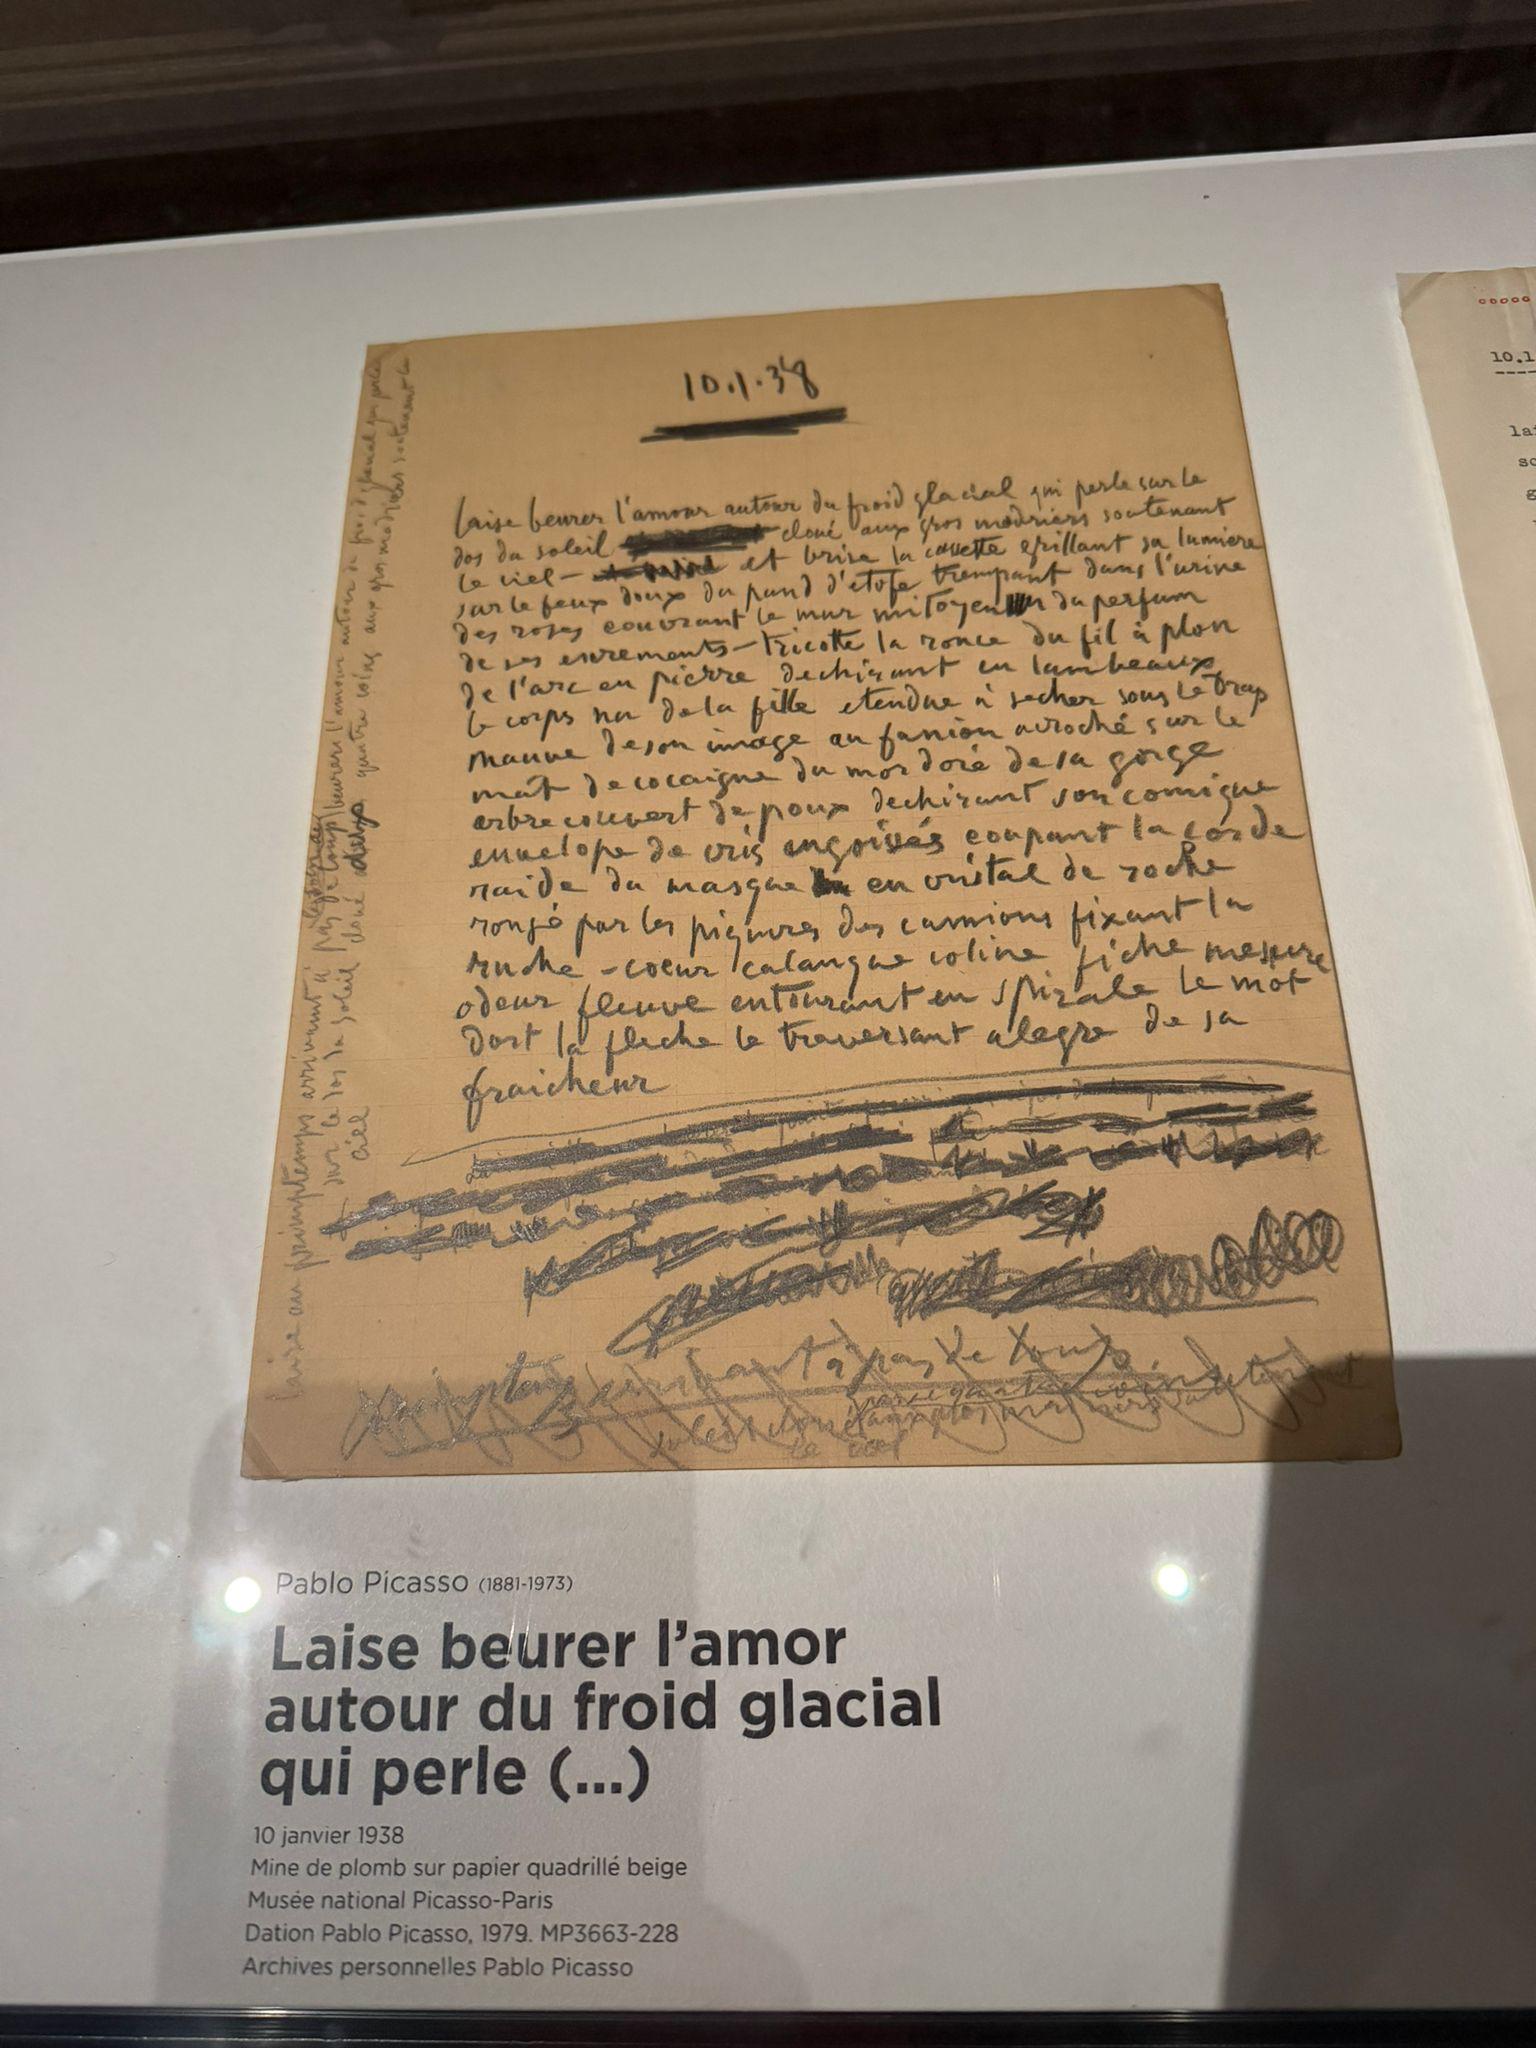 10.1.38
laise beurer l'amour autour du froid glacial qui perle sur le
dos du soleil cloué aux gros madriers soutenant
le ciel – et brise la cassette grillant sa lumière
sur le feux doux du pand d'etofe trempant dans l'urine
des roses couvrant le mur mitoyen du parfum
de ses excrements – tricotte la ronce du fil à plon
de l'arc en pierre dechirant en lambeaux
le corps nu de la fille etendue à secher sous le drap
mauve de son image au fanion acroché sur le
mât de cocaigne du mordoré de sa gorge
arbre couvert de poux dechirant son comique
envelope de cris engoisés coupant la corde
raide du masque en cristal de roche
rongé par les piqures des camions fixant la
ruche – coeur calangue coline fiche mesure
odeur fleuve entourant en spirale le mot
dort la fleche le traversant alegre de sa
fraicheur
arrivant à pas de loup
le ciel
laise au primptemps arrivant à pas de loup beurer l'amour autour du froid glacial qui perle
sur le dos du soleil cloué quatre coins aux gros madriers soutenant le
ciel
10.1
Pablo Picasso (1881-1973)
Laise beurer l'amor
autour du froid glacial
qui perle (...)
10 janvier 1938
Mine de plomb sur papier quadrillé beige
Musée national Picasso-Paris
Dation Pablo Picasso, 1979. MP3663-228
Archives personnelles Pablo Picasso